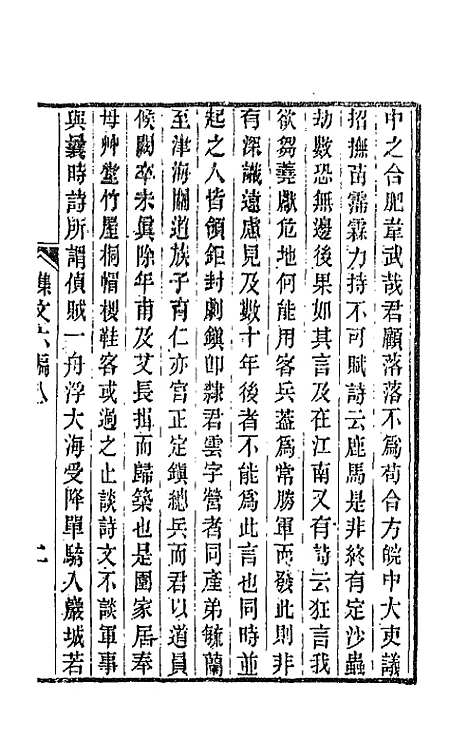 中之合肥韋武哉君顧落落不爲苟合方皖中大吏議
招撫苗霈霖力持不可賦詩云鹿馬是非終有定沙蟲
劫數恐無邊後果如其言及在江南又有詩云狂言我
欲芻蕘獻危地何能用客兵蓋爲常勝軍而發此則非
有深識遠慮見及數十年後者不能爲此言也同時並
起之人皆領鉅封劇鎭卽隸君雲字營者同產弟毓蘭
至津海關道族子育仁亦官正定鎭總兵而君以道員
候闕卒未眞除年甫及艾長揖而歸築也是園家居奉
母艸堂竹屋桐帽椶鞋客或過之止談詩文不談軍事
與曩時詩所謂偵賊一舟浮大海受降單騎入嚴城若
襍文六編八